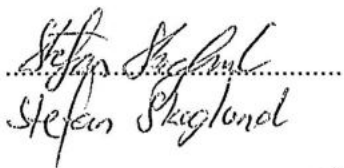 Stefan Skoglund
Stefan Skoglund